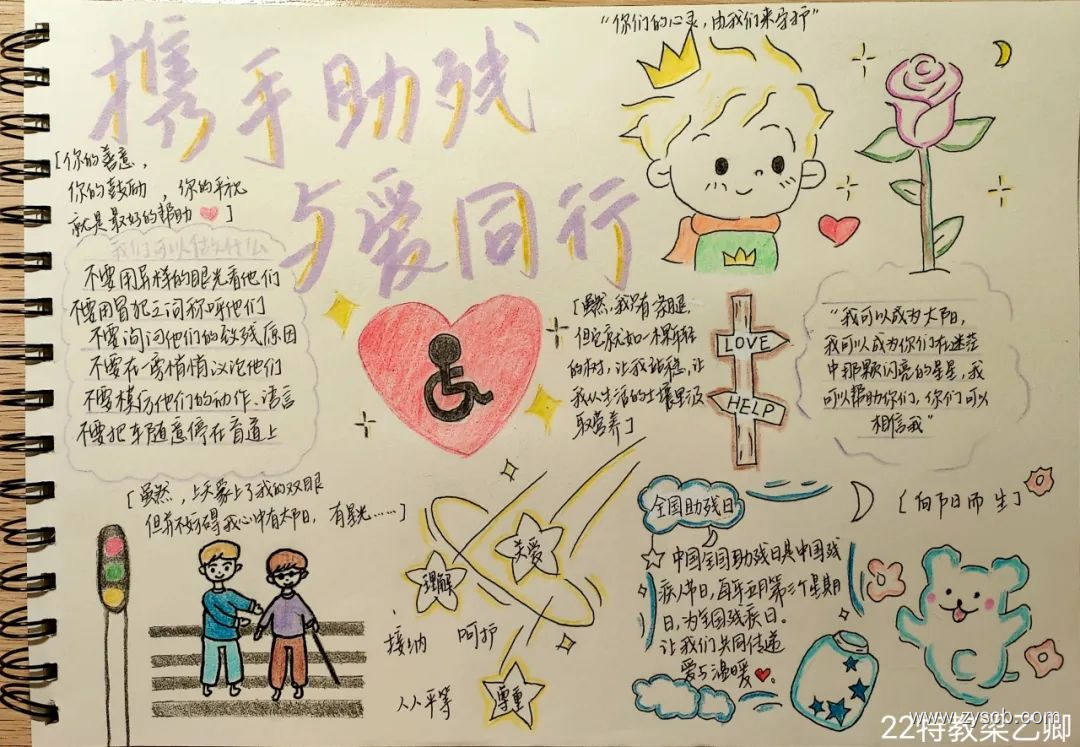 携手助残
与爱同行
"你们的心灵,由我们来守护"
[你的善意,
你的鼓励,你的平视
就是最好的帮助]
我们可以做什么
不要用异样的眼光看他们
不要用冒犯之词称呼他们
不要询问他们的致残原因
不要在旁悄悄议论他们
不要模仿他们的动作、语言
不要把车随意停在盲道上
[虽然,我只有一条腿
但它就如一棵年轻
的树,让我站稳,让
我从生活的土壤里汲
取营养]
LOVE
HELP
"我可以成为太阳,
我可以成为你们在迷茫
中那颗闪亮的星星,我
可以帮助你们,你们可以
相信我"
[虽然,上天蒙上了我的双眼
但并不妨碍我心中有太阳,有星光……]
关爱
理解
接纳 呵护
人人平等
尊重
全国助残日
[向阳而生]
中国全国助残日是中国残
疾人节日,每年五月第三个星期
日,为全国残疾日。
让我们共同传递
爱与温暖。
www.zyscb.com
22特教梁乙卿